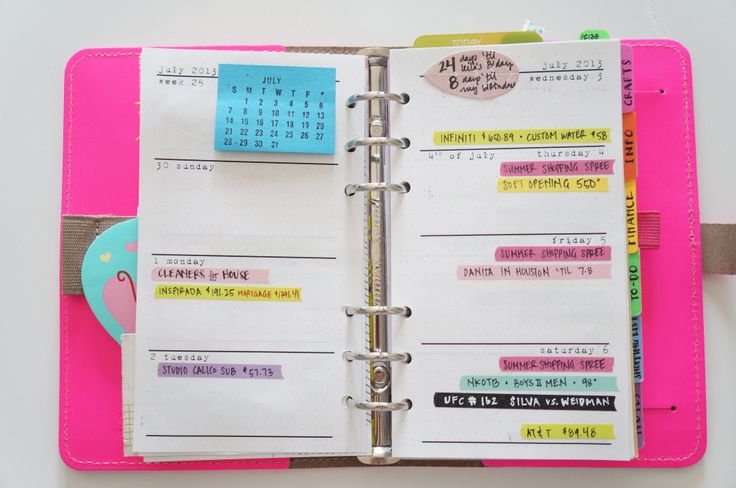 july 2013
week 25
JULY
S M T W T F S
1 2 3 4 5 6
7 8 9 10 11 12 13
14 15 16 17 18 19 20
21 22 23 24 25 26 27
28 29 30 31
30 sunday
1 monday
CLEANERS for HOUSE
INSPIRADA $191.25 MORTGAGE
2 tuesday
STUDIO CALICO SUB $57.73
TODAY
24 days 'til
8 days 'til
july 2013
wednesday 3
INFINITI $650.89 • CUSTOM WATER $58
4th of july thursday 4
SUMMER SHOPPING SPREE
SOFT OPENING
friday 5
SUMMER SHOPPING SPREE
DANITA IN HOUSTON 'TIL 7.8
saturday 6
SUMMER SHOPPING SPREE
NKOTB • BOYS II MEN • 98°
UFC #162 SILVA VS. WEIDMAN
AT&T $89.48
CRAFTS
INFO
FINANCE
TO-DO
SHOPPING LIST
NOTES